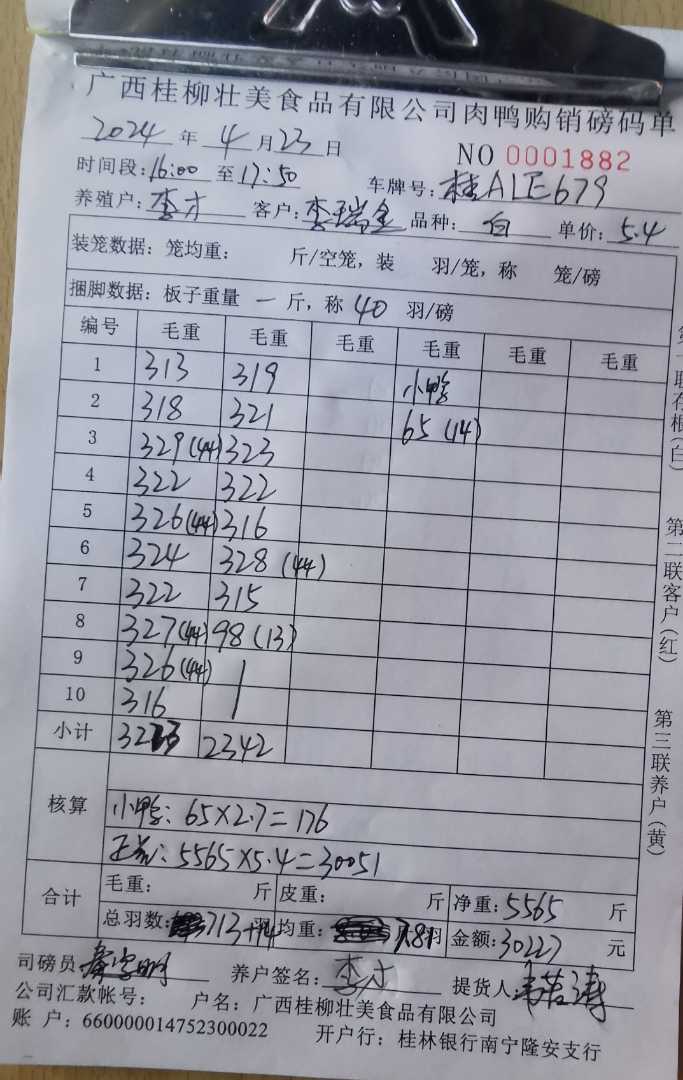 广西桂柳壮美食品有限公司肉鸭购销磅码单
2024 年 4 月 23 日 NO 0001882
时间段:16:00 至 17:50 车牌号:桂ALE679
养殖户:李才 客户:李瑞金 品种:白 单价:5.4
装笼数据:笼均重: 斤/空笼,装 羽/笼,称 笼/磅
捆脚数据:板子重量 一 斤,称 40 羽/磅
编号 毛重 毛重 毛重 毛重 毛重 毛重
1 313 319 小鸭
2 318 321 65 (14)
3 329 (44) 323
4 322 322
5 326 (44) 316
6 324 328 (44)
7 322 315
8 327 (44) 98 (13)
9 326 (44)
10 316
小计 3223 2342
核算
小鸭:65×2.7=176
正品:5565×5.4=30051
合计 毛重: 斤 皮重: 斤 净重:5565 斤
总羽数:713+14羽 均重:7.81 羽 金额:30227 元
司磅员 养户签名:李才 提货人:
公司汇款帐号: 户名:广西桂柳壮美食品有限公司
账 户:660000014752300022 开户行:桂林银行南宁隆安支行
第一联存根(白) 第二联客户(红) 第三联养户(黄)